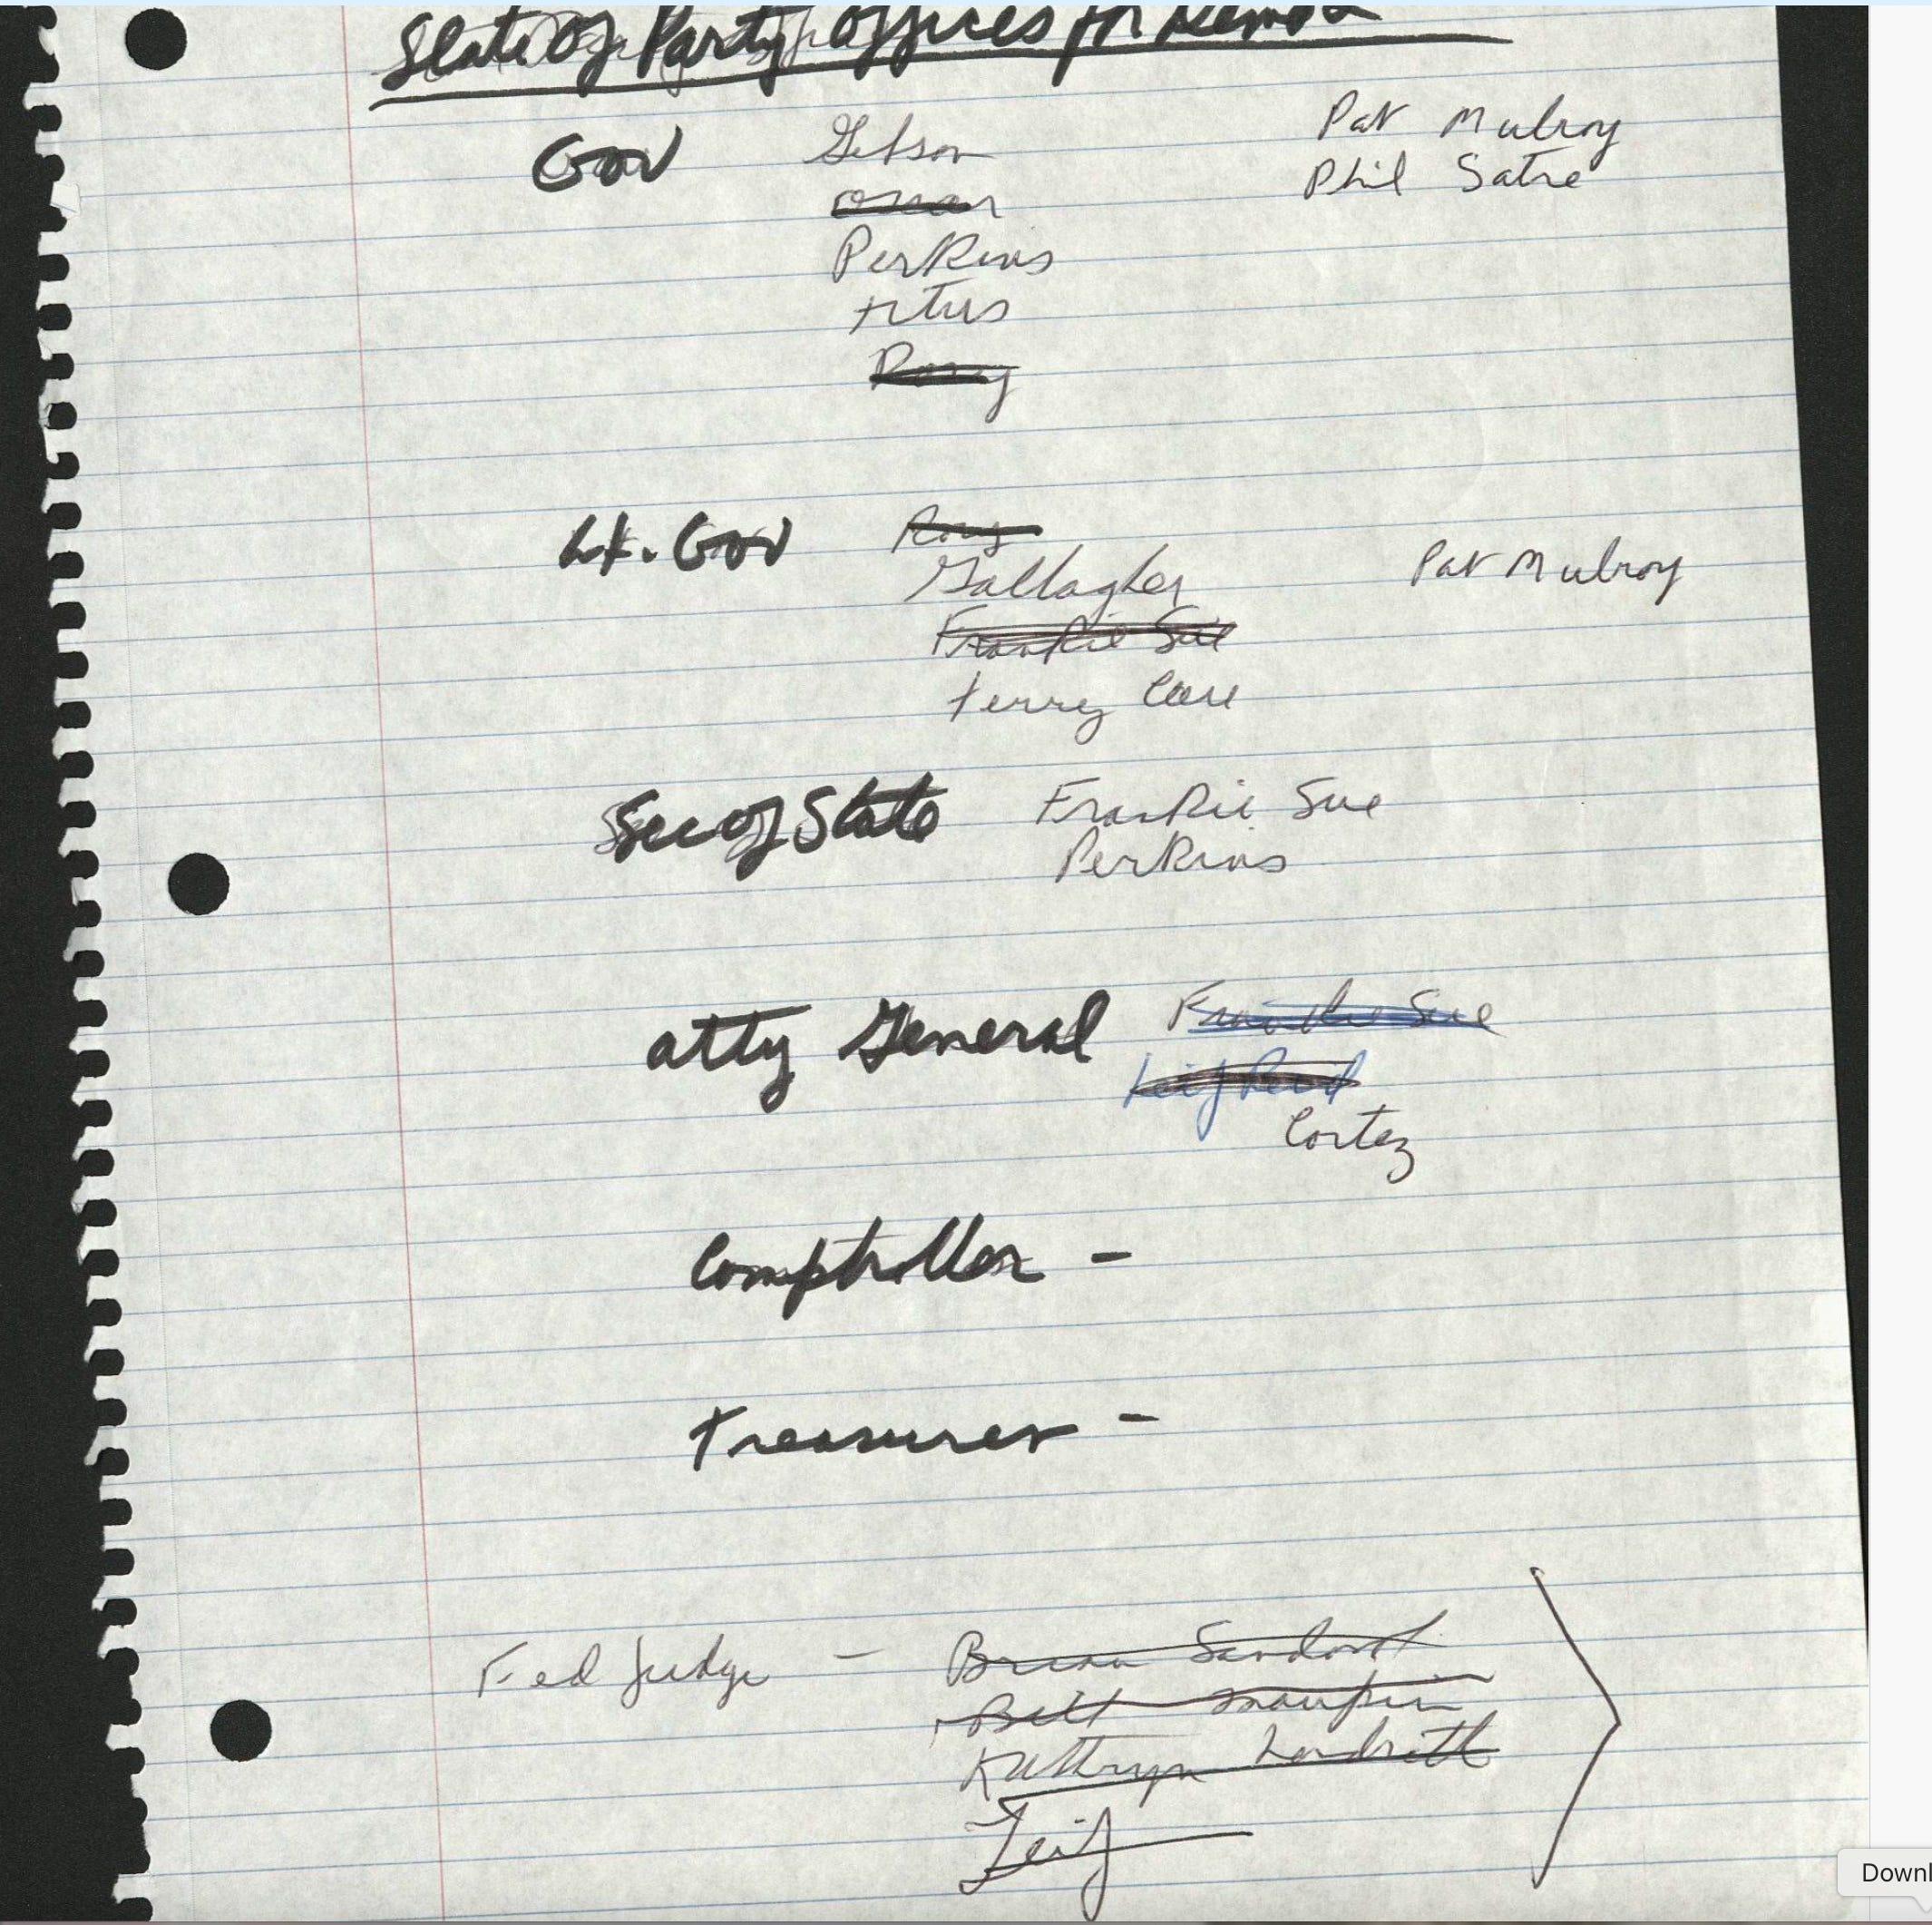 Slate of Party offices for Demos
Gov Gibson Pat Mulroy
Oscar Phil Satre
Perkins
titus
Rory
Lt. Gov Rory
Gallagher Pat Mulroy
Frankie Sue
terry Care
Sec of State Frankie Sue
Perkins
atty General Frankie Sue
Leif Reid
Cortez
Comptroller -
treasurer -
Fed Judge - Brian Sandoval
Bill Maupin
Kathryn Landreth
Leif
Downl